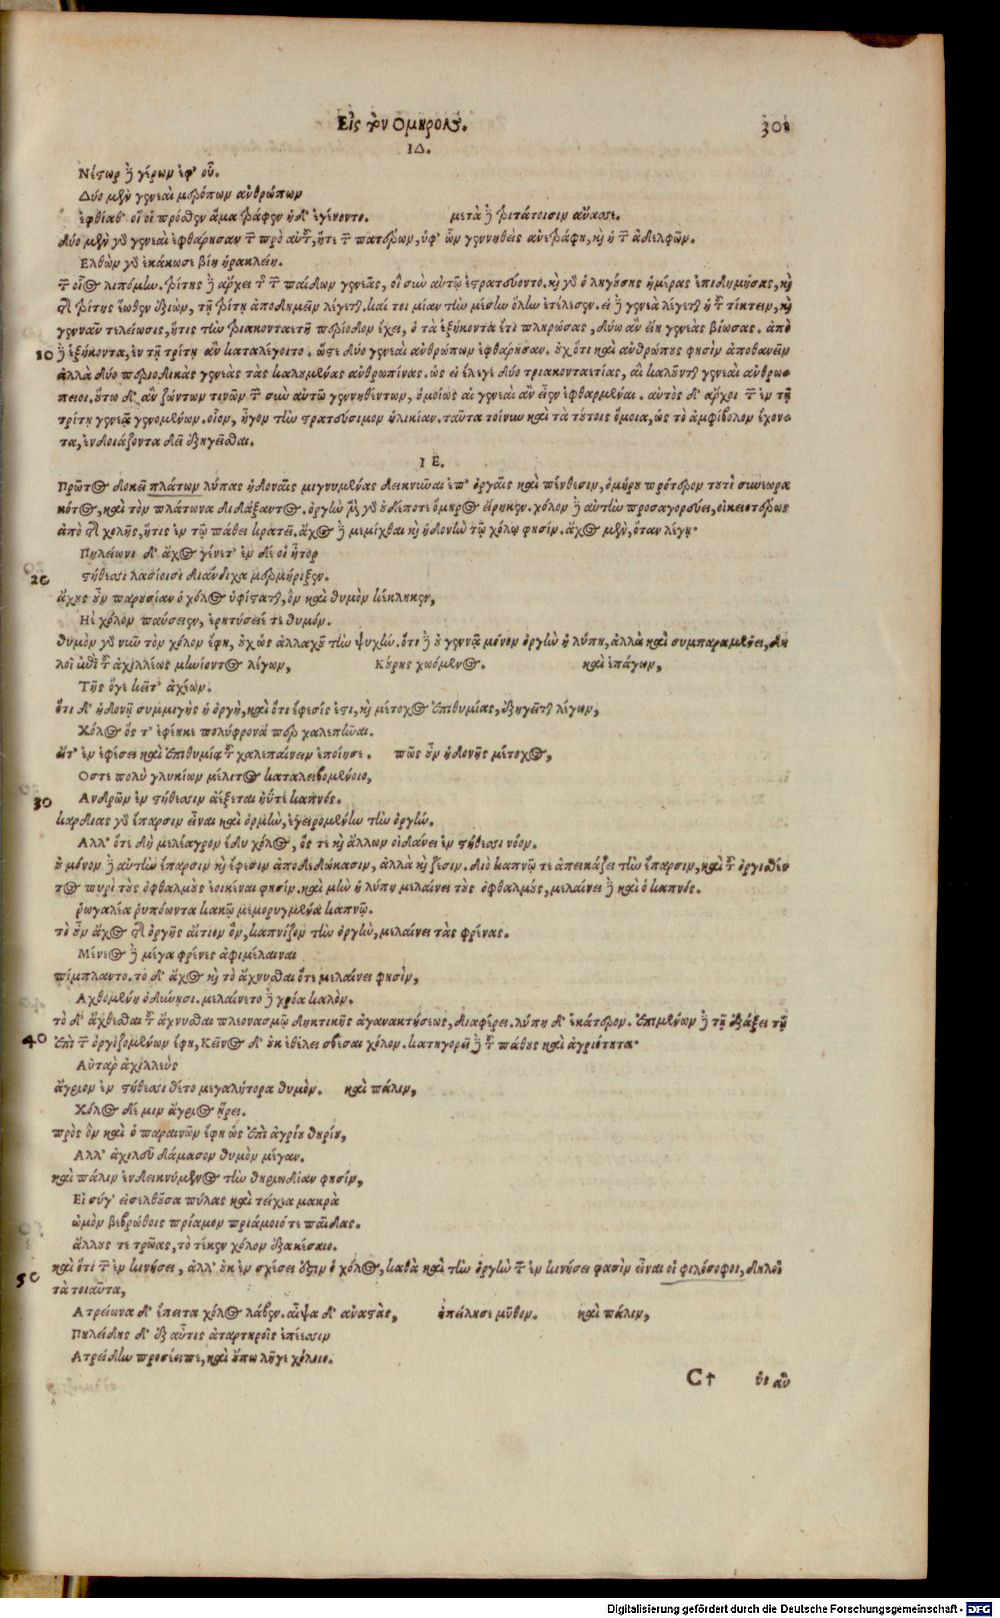 Εἰς τὸν Ὅμηρον. 301
ΙΔ.
Νέστωρ ὁ γέρων ἐφ' οὗ.
Δύο μὲν γενεαὶ μερόπων ἀνθρώπων
ἐφθίαθ' οἵ οἱ πρόσθεν ἅμα τράφεν ἠδ' ἐγένοντο. μετὰ δὲ τριτάτοισιν ἄνασσε.
δύο μὲν γὰρ γενεαὶ ἐφθάρησαν τῶν πρὸ αὐτοῦ, ἥτε τῶν πατέρων, ὑφ' ὧν γεννηθεὶς ἀνετράφη, καὶ ἡ τῶν ἀδελφῶν.
Ελθὼν γὰρ ἐκάκωσε βίη ἡρακλείη.
τῶν οἷος λιπόμην. τρίτης δὲ ἄρχει τῶν τῶν παίδων γενεᾶς, οἳ σὺν αὐτῷ ἐστρατεύοντο. καὶ γὰρ ὁ ληγούσης ἡμέρας ἐπιδημήσας, καὶ
τῆς τρίτης ἕωθεν ἐξιὼν, τῇ τρίτῃ ἀποδημεῖν λέγεται. καί τοι μίαν τὴν μέσην ὅλην ἐτέλεσεν. εἰ δὲ γενεὰ λέγεται ἡ τοῦ τίκτειν, καὶ
γεννᾶν τελείωσις, ἥτις τὴν τριακονταετῆ περίοδον ἔχει, ὁ τὰ ἑξήκοντα ἔτη πληρώσας, δύω ἂν εἴη γενεὰς βίωσας. ἀπὸ
10 δὲ ἑξήκοντα, ἐν τῇ τρίτῃ ἂν καταλέγοιτο. ὥστε δύο γενεαὶ ἀνθρώπων ἐφθάρησαν. οὐχ ὅτι καὶ ἀνθρώπους φησὶν ἀποθανεῖν
ἀλλὰ δύο περιοδικὰς γενεὰς τὰς καλουμένας ἀνθρωπίνας. ὡς εἰ ἔλεγε δύο τριακονταετίας, αἳ καλοῦνται γενεαὶ ἀνθρω-
πειοι. οὕτω δ' ἂν ζώντων τινῶν τῶν σὺν αὐτῷ γεννηθέντων, ὁμοίως αἱ γενεαὶ ἂν εἶεν ἐφθαρμέναι. αὐτὸς δ' ἄρχοι τῶν ἐν τῇ
τρίτῃ γενεᾷ γενομένων. οἷον, ἦγον τὴν στρατεύσιμον ἡλικίαν. ταῦτα τοίνυν καὶ τὰ τούτοις ὅμοια, ὡς τὸ ἀμφίβολον ἔχον-
τα, ἐνδοιάζοντα δεῖ ἐξηγεῖσθαι.
ΙΕ.
Πρῶτος δοκεῖ πλάτων λύπας ἡδοναῖς μιγνυμένας δεικνῦναι ἐπ' ὀργαῖς καὶ πένθεσιν, ὁμήρου πρότερον τουτὶ συνεωρα
κότος, καὶ τὸν πλάτωνα διδάξαντος. ὀργὴν μὲν γὰρ οὐδέποτε ὅμηρος εἴρηκεν. χόλον δὲ αὐτὴν προσαγορεύει, οἰκειοτέρως
ἀπὸ τῆς χολῆς, ἥτις ἐν τῷ πάθει κρατεῖ. ἄχος δὲ μεμίχθαι καὶ ἡδονὴν τῷ χόλῳ φησίν. ἄχος μὲν, ὅταν λέγῃ·
Πηλείωνι δ' ἄχος γένετ' ἐν δέ οἱ ἦτορ
20 στήθεσσι λασίοισι διάνδιχα μερμήριξεν.
ἄχους οὖν παρουσίαν ὁ χόλος ὑφίσταται, ὃν καὶ θυμὸν κέκληκεν,
Ηὲ χόλον παύσειεν, ἐρητύσειέ τε θυμόν.
θυμὸν γὰρ νῦν τὸν χόλον ἔφη, οὐχ ὡς ἀλλαχοῦ τὴν ψυχήν. ὅτι δὲ οὐ γεννᾷ μόνον ὀργὴν ἡ λύπη, ἀλλὰ καὶ συμπαραμένει, δη
λοῖ ἐπὶ τοῦ ἀχιλλέως μηνίοντος λέγων, Κούρης χωόμενος. καὶ ἐπάγων,
Τῆς ὅγε κεῖτ' ἀχέων.
ὅτι δ' ἡδονῇ συμμιγὴς ἡ ὀργὴ, καὶ ὅτι ἔφεσίς ἐστι, καὶ μέτοχος ἐπιθυμίας, ἐξηγεῖται λέγων,
Χόλος ὅς τ' ἐφέηκε πολύφρονά περ χαλεπῆναι.
ἅτ' ἐν ἐφέσει καὶ ἐπιθυμίᾳ τοῦ χαλεπαίνειν ἐποίησε. πῶς οὖν ἡδονῆς μέτοχος,
Οστε πολὺ γλυκίων μέλιτος καταλειβομένοιο,
30 Ανδρῶν ἐν στήθεσσιν ἀέξεται ἠΰτε καπνός.
καρδίας γὰρ ἔπαρσιν εἶναι καὶ ὁρμὴν, ἐγειρομένην τὴν ὀργήν.
Αλλ' ὅτε δὴ μελέαγρον ἔδυ χόλος, ὅς τε καὶ ἄλλων οἰδάνει ἐν στήθεσσι νόον.
οὐ μόνον δὲ αὐτὴν ἔπαρσιν καὶ ἔφεσιν ἀποδεδώκασιν, ἀλλὰ καὶ ζέσιν. διὸ καπνῷ τε ἀπεικάζει τὴν ἔπαρσιν, καὶ τοῦ ὀργισθέν
τος πυρὶ τοὺς ὀφθαλμοὺς ἐοικέναι φησίν. καὶ μὴν ἡ λύπη μελαίνει τοὺς ὀφθαλμούς, μελαίνει δὲ καὶ ὁ καπνός.
ῥωγαλέα ῥυπόωντα κακῷ μεμορυγμένα καπνῷ.
τὸ οὖν ἄχος τῆς ὀργῆς αἴτιον ὂν, καπνίζον τὴν ὀργὴν, μελαίνει τὰς φρένας.
Μένεος δὲ μέγα φρένες ἀμφιμέλαιναι
πίμπλαντο. τὸ δ' ἄχος καὶ τὸ ἄχνυσθαι ὅτε μελαίνει φησὶν,
Αχθομένη ὀδύνησι. μελαίνετο δὲ χρόα καλόν.
τὸ δ' ἄχθεσθαι τοῦ ἄχνυσθαι πλεονασμῷ δηκτικῆς ἀγανακτήσεως, διαφέρει. λύπη δ' ἑκάτερον. ἐπιμένων δὲ τῇ ἐξάξει τῇ
40 ἐπὶ τῶν ὀργιζομένων ἔφη, Κεῖνος δ' οὐκ ἐθέλει σβέσαι χόλον. κατηγορεῖ δὲ τοῦ πάθους καὶ ἀγριότητα·
Αὐτὰρ ἀχιλλεὺς
ἄγριον ἐν στήθεσσι θέτο μεγαλήτορα θυμόν. καὶ πάλιν,
Χόλος δέ μιν ἄγριος ᾕρει.
πρὸς ὃν καὶ ὁ παραινῶν ἔφη ὡς ἐπὶ ἀγρίου θηρίου,
Αλλ' ἀχιλεῦ δάμασον θυμὸν μέγαν.
καὶ πάλιν ἐνδεικνύμενος τὴν θηριωδίαν φησίν,
Εἰ σύγ' εἰσελθοῦσα πύλας καὶ τείχεα μακρὰ
ὠμὸν βεβρώθοις πρίαμον πριάμοιό τε παῖδας.
ἄλλους τε τρῶας, τό τεκεν χόλον ἐξακέσαιο.
50 καὶ ὅτι τῶν ἐν κινήσει, ἀλλ' οὐκ ἐν σχέσει ἐστὶν ὁ χόλος, καθὰ καὶ τὴν ὀργὴν τῶν ἐν κινήσει φασὶν εἶναι οἱ φιλόσοφοι, δηλοῖ
τὰ τοιαῦτα,
Ατρείωνα δ' ἔπειτα χόλος λάβεν. αἶψα δ' ἀναστὰς, ἠπείλησε μῦθον. καὶ πάλιν,
Πηλείδης δ' ἐξ αὖτις ἀταρτηροῖς ἐπέεσσιν
Ατρείδην προσέειπε, καὶ οὔπω λῆγε χόλοιο.
C † ὑι αὖ
Digitalisierung gefördert durch die Deutsche Forschungsgemeinschaft - DFG